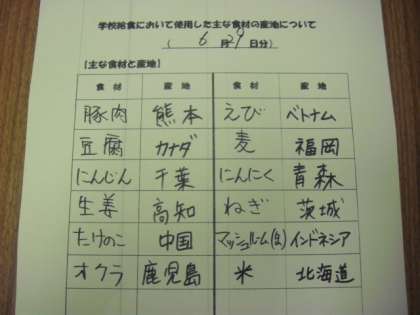 学校給食において使用した主な食材の産地について
( 6月29日分)
【主な食材と産地】
食材 産地 食材 産地
豚肉 熊本 えび ベトナム
豆腐 カナダ 麦 福岡
にんじん 千葉 にんにく 青森
生姜 高知 ねぎ 茨城
たけのこ 中国 マッシュルーム(缶) インドネシア
オクラ 鹿児島 米 北海道